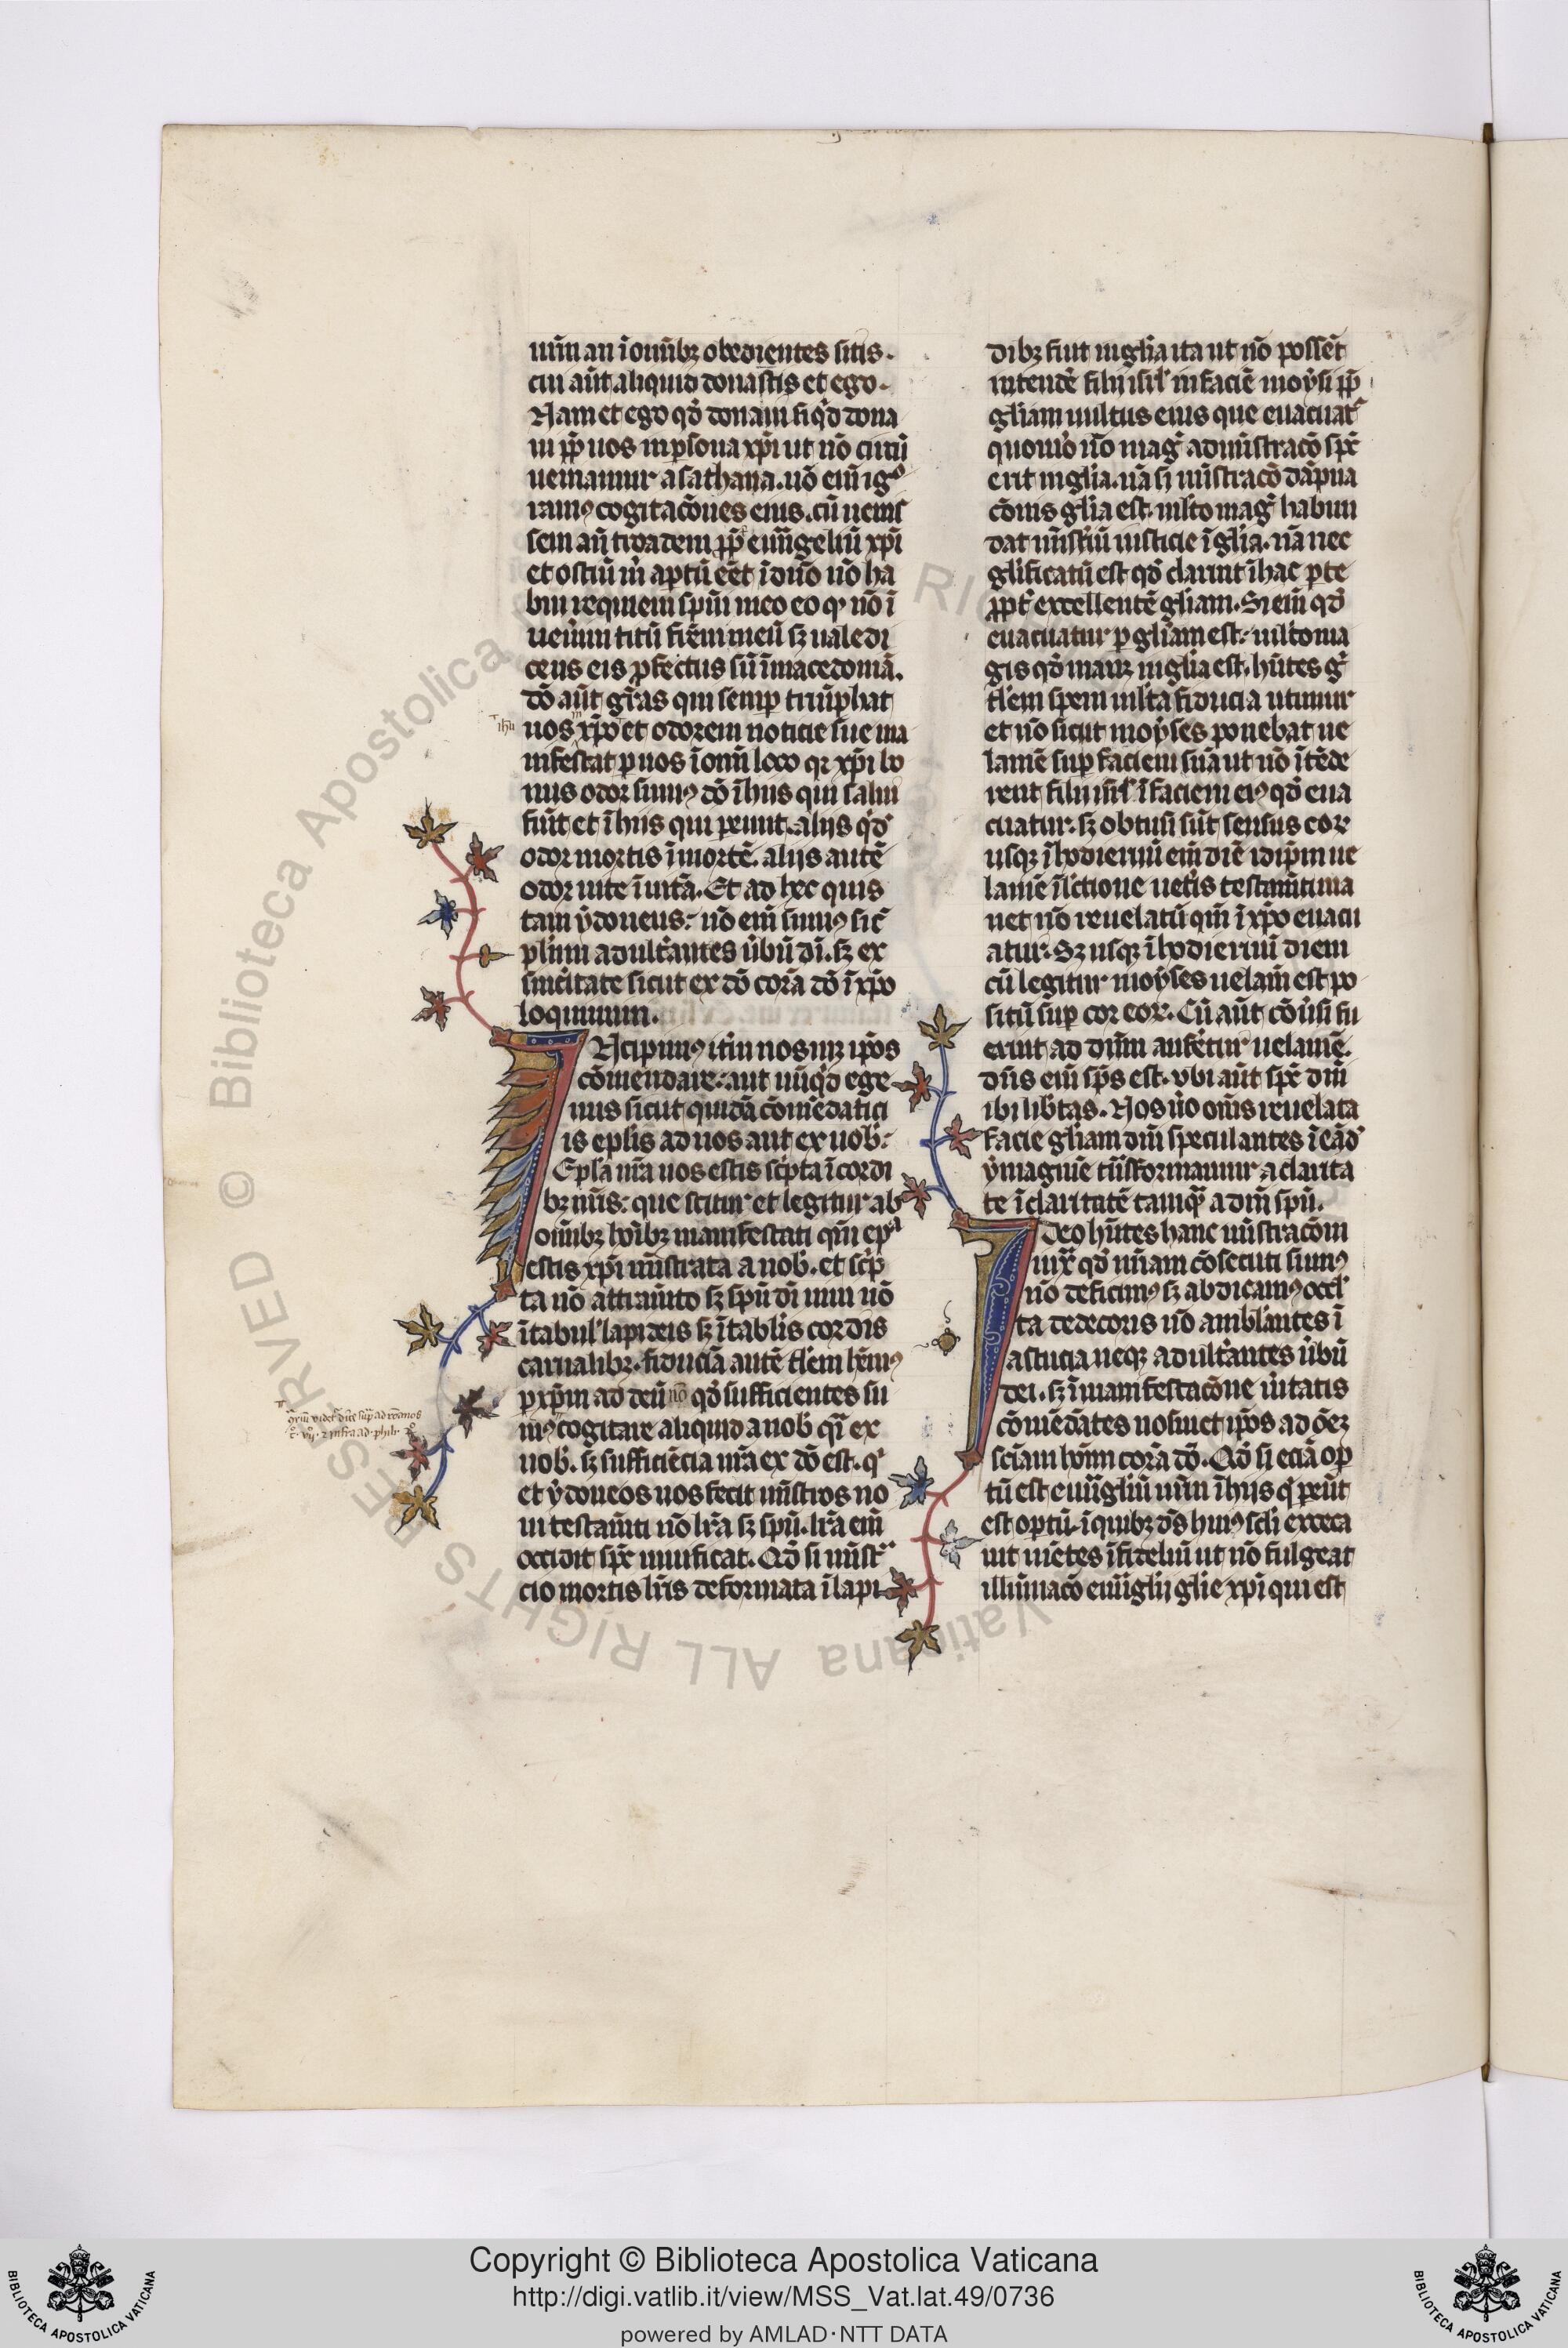 um̄ an ī om̄ibꝫ obedientes sitis.
cui aūt aliquid donastis et ego.
Nam et ego qd̄ donaui si qͥd dona
ui ꝓp̄ uos in ꝑsona xp̄i ut nō circū
ueniamur a sathana. nō eī igͦ
ramꝰ cogitac̄ōnes eius. cū uenis
sem aūt troadem ꝓp̄ euuāgeliū xp̄i
et ostiū m̄ aptū eēt ī dn̄o nō ha
bui requiem spū̄i meo eo qꝫ nō ī
uenim̄ titū frēm meū sꝫ uale di
cens eis ꝓfectus sū ī macedoniā.
dō aūt gr̄as qui semꝑ triūphat
nos ī xp̄o et odorem noticie sue ma
nifestat ꝑ nos ī om̄i loco qꝛ xp̄i bo
nus odor sumꝰ dō ī hiis qui salui
fiūt et ī hiis qui pereunt. alijs qͥd̄
odor mortis ī mortē. alijs autē
odor uite ī uitā. Et ad hec quis
tam ẏdoneus. nō eī sumꝰ sic̄
plīmi adultͥantes ūbū dī. sꝫ ex
sīnc̄itate sicut ex dō corā dō ī xp̄o
loquimur.
Ncipimꝰ itīm nosmꝫ ip̄os
cōmendare. aut nūqͥd ege
mus sicut quidā cōmēdatici
is ep̄lis ad uos aut ex uob̄.
Epl̄a nr̄a uos estis sc̄pta ī cordi
bꝫ nr̄is. que scitur et legitur ab
om̄ibꝫ hōībꝫ manifestati qm̄ ep̄l̄a
estis xp̄i mīstrata a nob̄. et sc̄p
ta nō attram̄to sꝫ spū dī uiui nō
ī tabul̄ lapideis sꝫ ī tabl̄is cordis
carnalibꝫ. fiduciā autē tl̄em hēmꝰ
ꝑ xp̄m ad deū nō qd̄ sufficientes si
mꝰ cogitare aliquid a nob̄ qͣi ex
nob̄. sꝫ sufficiēcia nr̄a ex dō est. qͥ
et ẏdoneos nos fecit mīstros no
ui testam̄ti nō lr̄a sꝫ spū. lr̄a eī
occidit spc̄ uiuificat. Qd̄ si mīstͣ
cio mortis lr̄is deformata ī lapi
dibꝫ fuit in gl̄ia ita ut nō possēt
intendē filij isr̄l in faciē moẏsi ꝓp̄
gl̄iam uultus eius que euacuat̄
quomō nō magͥ admīstracō spc̄
erit in gl̄ia. nā si mīstracō dāpna
cōnis gl̄ia est. ml̄to magͥ habun
dat mīst̄iū iusticie ī gl̄ia. nā nec
gl̄ificatū est qd̄ claruit ī hac ꝑte
ꝓpt̄ excellentē gl̄iam. Si eī qd̄
euacuatur ꝑ gl̄iam est. ml̄to ma
gis qd̄ manꝫ in gl̄ia est. hn̄tes gͥ
tl̄em spem ml̄ta fiducia utimur
et nō sicut moẏses ponebat ue
lamē suꝑ faciem suā ut nō ītēde
rent filij isr̄l ī faciem eiꝰ qd̄ eua
cuatur. sꝫ obtusi sūt sensus eoꝝ
usqꝫ ī hodiernū eī diē idip̄m ue
lamē ī lectione uet̄is testam̄ti ma
net nō reuelatū qm̄ ī xp̄o euacu
atur. Sꝫ usqꝫ ī hodiernū diem
cū legitur moẏses uelam̄ est po
situ suꝑ cor eoꝝ. Cū aūt cōūsi fu
erint ad dm̄ aufēretur uelamē.
dn̄s eī sps̄ est. vbi aūt spc̄ dn̄i
ibi lib̄tas. Nos ūo om̄s reuelata
facie gl̄iam dn̄i speculantes ī eād̄
ẏmaginē tn̄sformamur a clarita
te ī claritatē tamqͣ a dn̄i spū.
deo hn̄tes hanc mīstracōm
iuxͣ qd̄ mīam cōsecuti sumꝰ
nō deficimꝰ sꝫ abdicamꝰ occl̄
ta dedecoris nō ambl̄antes ī
astucia neqꝫ adultͥantes ūbū
dei. sꝫ ī manifestacōne ūitatis
cōmēdātes nosmet ip̄os ad ōēꝫ
sc̄iam hōīm corā dō. Qd̄ si eciā op
tū est euuāgliū nr̄m ī hijs qͥ pereūt
est optū. ī quibꝫ ds̄ huiꝰ sc̄li exceca
uit mētes īfideliū ut nō fulgeat
illūīnacō euuāglij gl̄ie xp̄i qui est
ihu
Copyright © Biblioteca Apostolica Vaticana
http://digi.vatlib.it/view/MSS_Vat.lat.49/0736
powered by AMLAD·NTT DATA
BIBLIOTECA APOSTOLICA VATICANA
BIBLIOTECA APOSTOLICA VATICANA
© Biblioteca Apostolica Vaticana ALL RIGHTS RESERVED